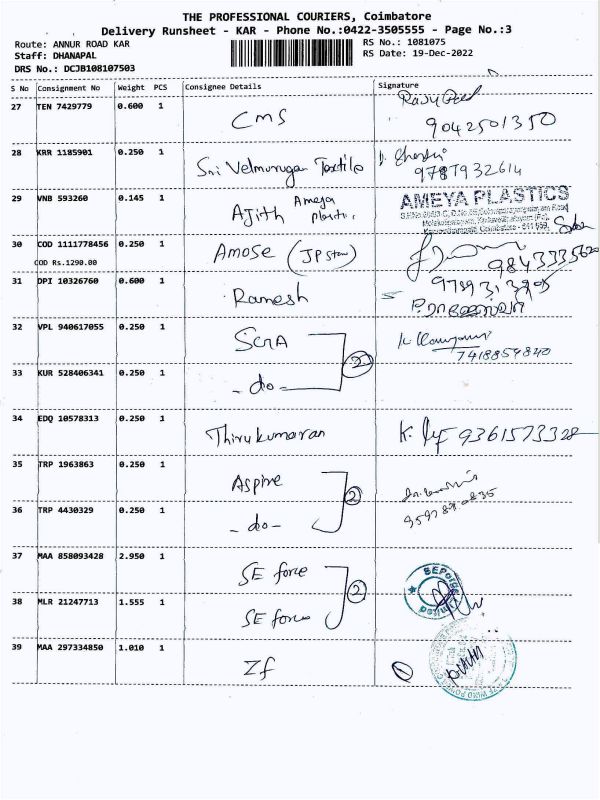 THE PROFESSIONAL COURIERS, Coimbatore
Delivery Runsheet - KAR - Phone No.:0422-3505555 - Page No.:3
Route: ANNUR ROAD KAR RS No.: 1081075
Staff: DHANAPAL RS Date: 19-Dec-2022
DRS No.: DCJB108107503
S No Consignment No Weight PCS Consignee Details Signature
27 TEN 7429779 0.600 1 CMS
9042501350
28 KRR 1185901 0.250 1 Sri Velmurugan Textile
9787932614
29 VNB 593260 0.145 1 Ajith Ameya AMEYA PLASTICS
30 COD 1111778456 0.250 1 Amose (JP Store) 9843335620
COD Rs.1290.00
31 DPI 10326760 0.600 1 Ramesh
32 VPL 940617055 0.250 1 2
7418859840
33 KUR 528406341 0.250 1 - do -
34 EDQ 10578313 0.250 1 Thirukumaran K. 9361573328
35 TRP 1963863 0.250 1 Aspire 2
36 TRP 4430329 0.250 1 - do -
37 MAA 858093428 2.950 1 SE force 2
38 MLR 21247713 1.555 1 SE force
39 MAA 297334850 1.010 1 Zf